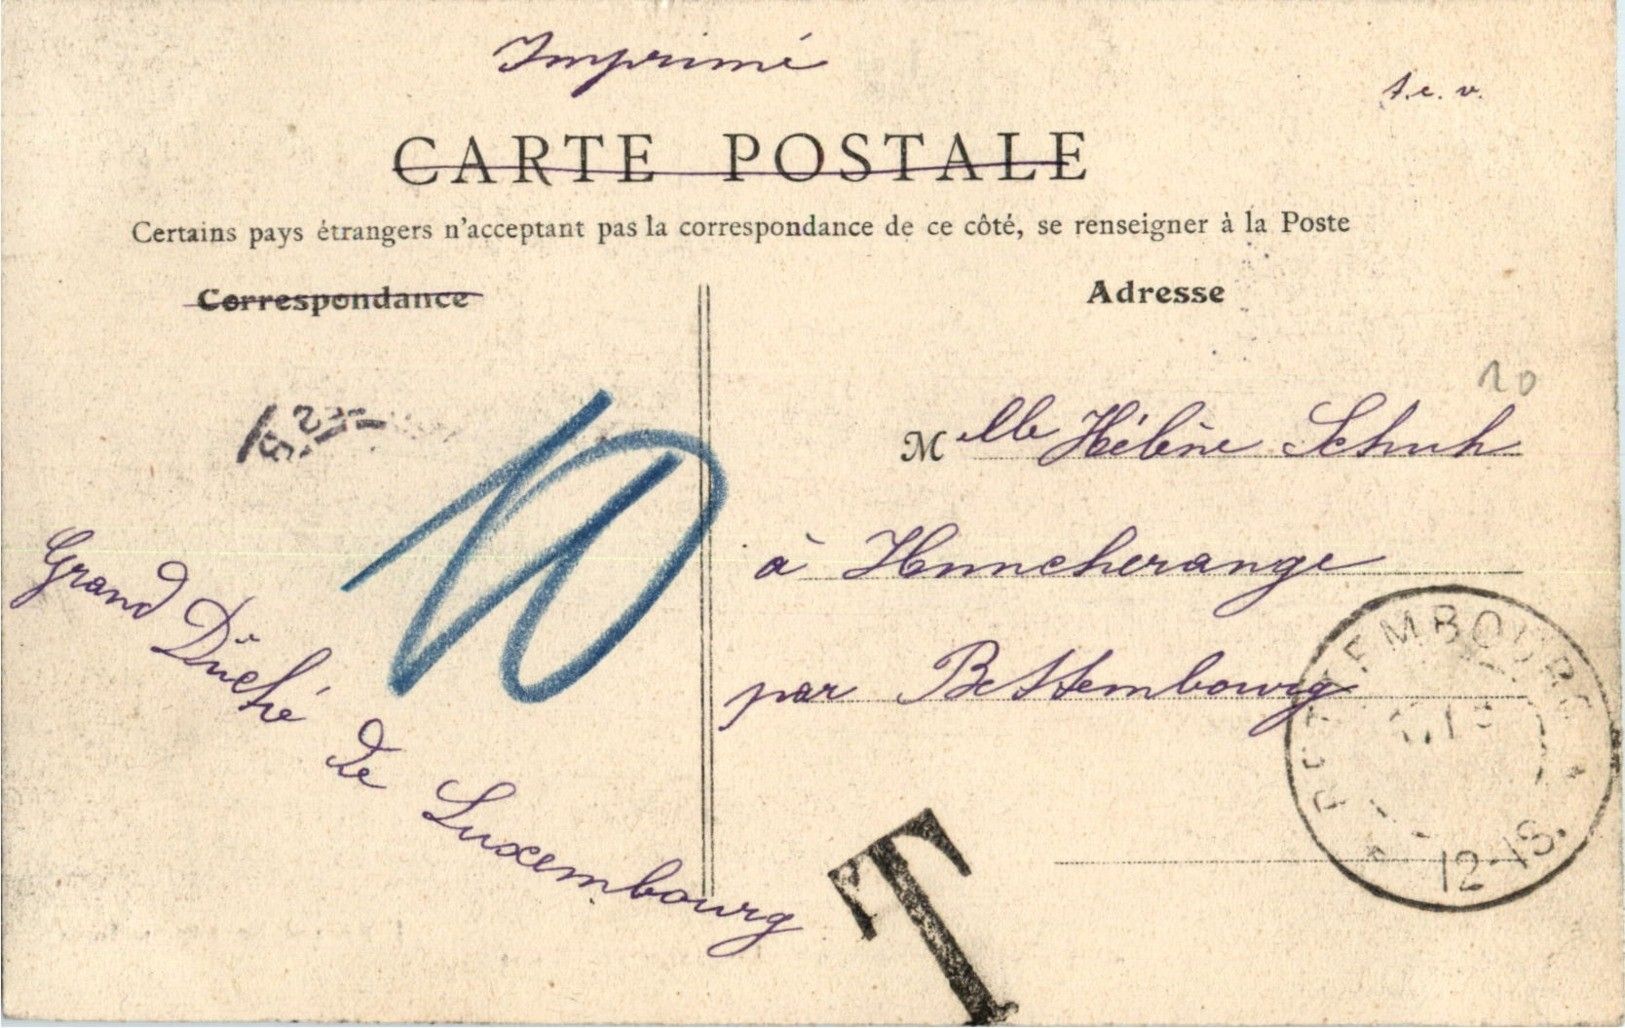 Imprimé
t.c.v.
CARTE POSTALE
Certains pays étrangers n'acceptant pas la correspondance de ce côté, se renseigner à la Poste
Correspondance
Adresse
10
10
Melle Hélène Schuh
à Hunncherange
par Bettembourg
Grand Dŭché de Luxembourg
BETTEMBOURG
12-1S.
T